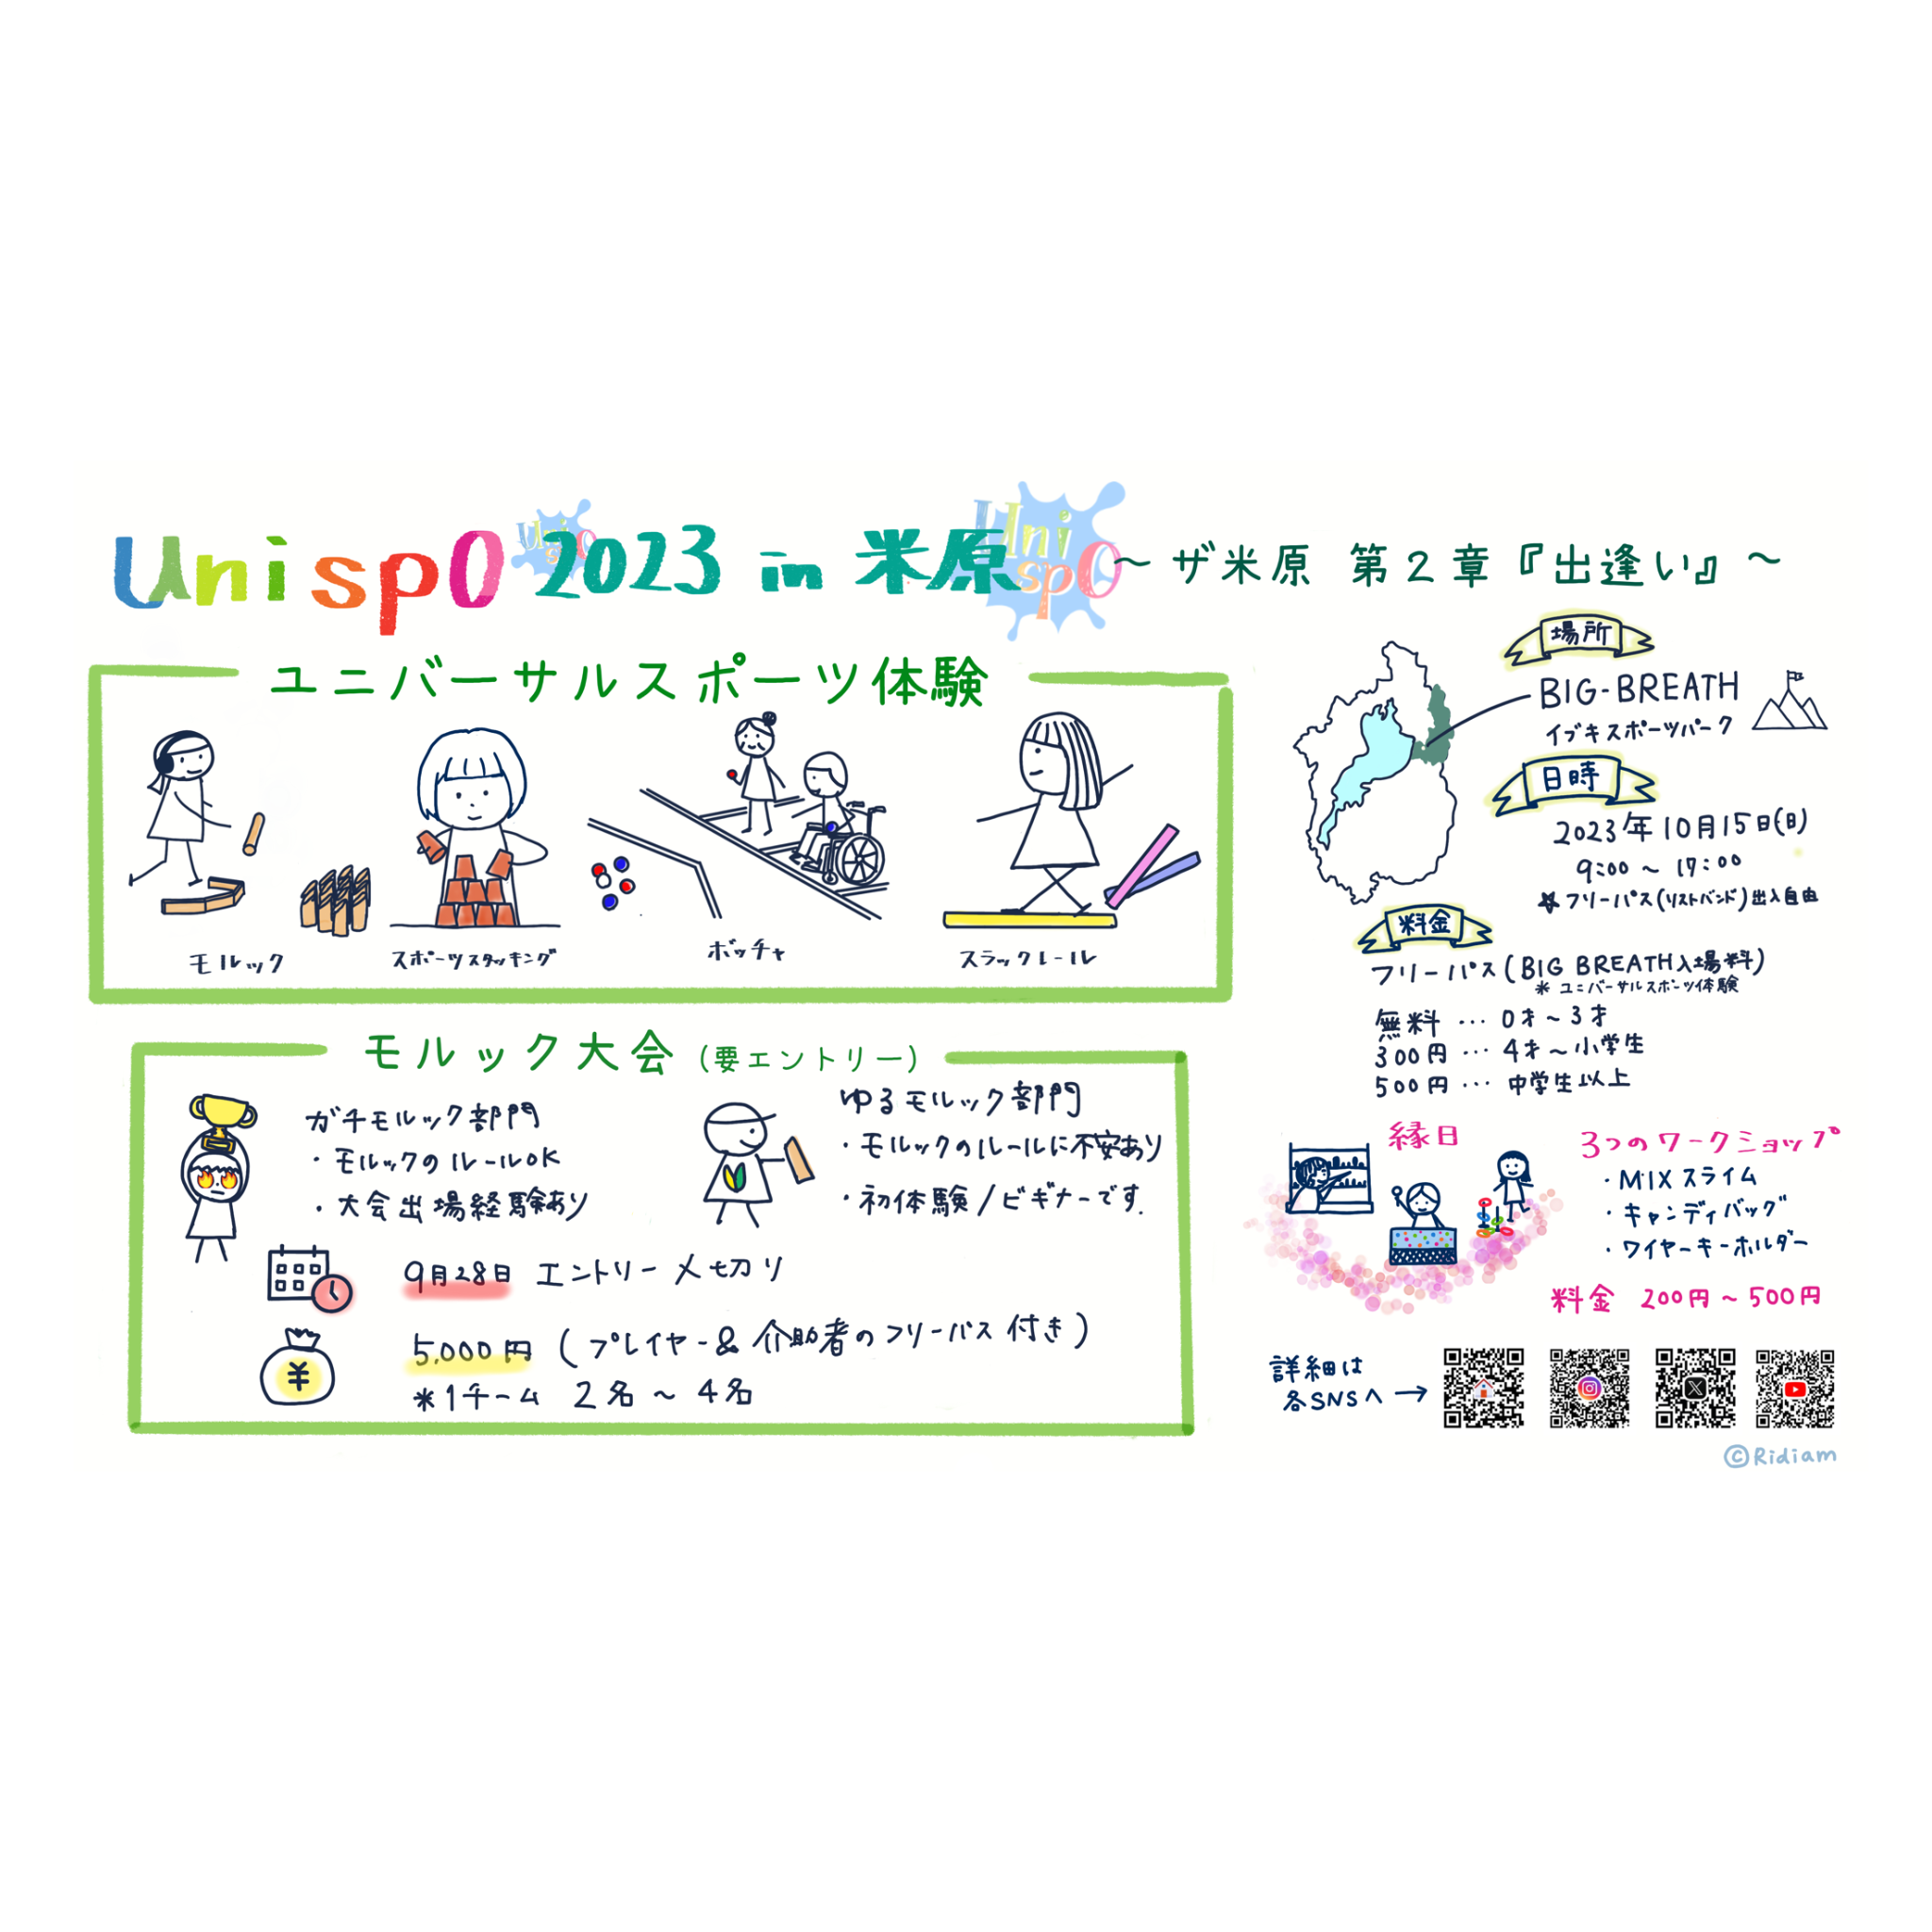 UnispO 2023 in 米原 ～ザ米原 第2章『出逢い』～
Uni
spO
Uni
spO
ユニバーサルスポーツ体験
モルック
スポーツスタッキング
ボッチャ
スラックレール
モルック大会 (要エントリー)
ガチモルック部門
・モルックのルールOK
・大会出場経験あり
ゆるモルック部門
・モルックのルールに不安あり
・初体験/ビギナーです.
9月28日 エントリー〆切り
¥
5,000円 (プレイヤー&介助者のフリーパス付き)
*1チーム 2名～4名
場所
BIG-BREATH
イブキスポーツパーク
日時
2023年10月15日(日)
9:00～17:00
☆フリーパス(リストバンド)出入自由
料金
フリーパス(BIG BREATH入場料)
* ユニバーサルスポーツ体験
無料 … 0才～3才
300円 … 4才～小学生
500円 … 中学生以上
縁日
3つのワークショップ
・MIXスライム
・キャンディバッグ
・ワイヤーキーホルダー
料金 200円～500円
詳細は
各SNSへ→
©Ridiam